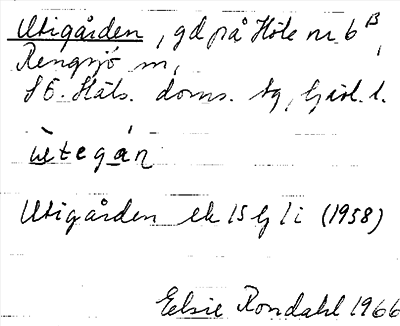 Utigården, gd på Höle nr 6 B,
Rengsjö sn,
S ö. Häls. doms. tg, Gävl. l.
ùtegán
Utigården ek 15 G 1 i (1958)
Elsie Rondahl 1966